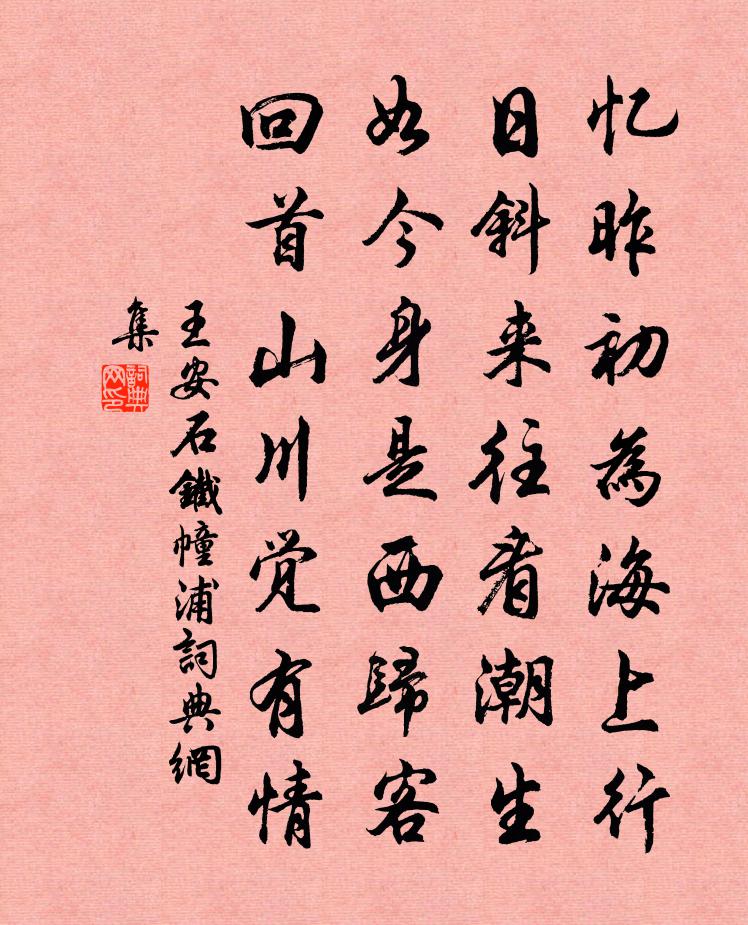 忆昨初為海上行
日斜来往看潮生
如今身是西歸客
回首山川觉有情
王安石鐵幢浦詞典網
集
詞典網印